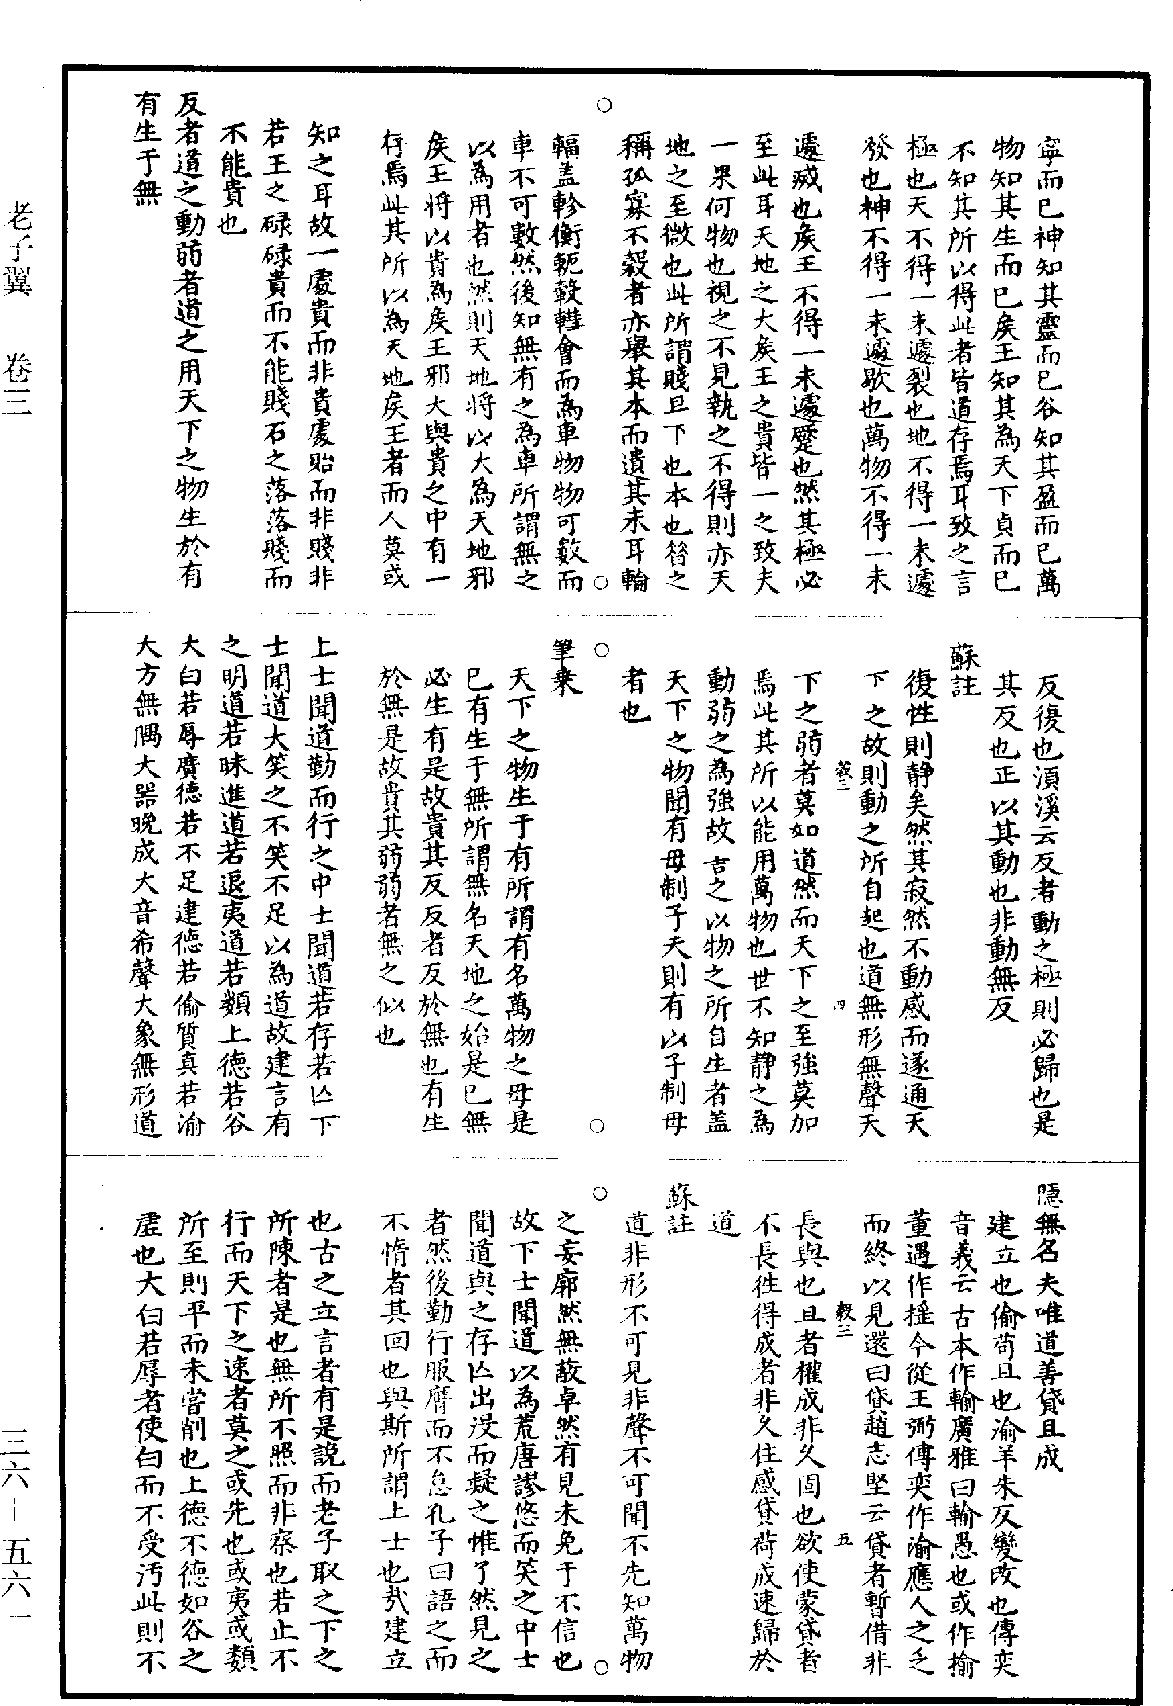 寧而已神知其靈而已谷知其盈而已萬
物知其生而已矦王知其為天下貞而已
不知其所以得此者皆道存焉耳致之言
極也天不得一未遽裂也地不得一未遽
發也神不得一未遽歇也萬物不得一未
遽滅也矦王不得一未遽蹷也然其極必
至此耳天地之大矦王之貴皆一之致夫
一果何物也視之不見執之不得則亦天
地之至微也此所謂賤且下也本也昝之
稱孤寡不穀者亦舉其本而遺其末耳輪
輻盖軫衡軛轂轊會而為車物物可數而
車不可數然後知無有之為車所謂無之
以為用者也然則天地將以大為天地邪
矦王將以貴為矦王邪大與貴之中有一
存焉此其所以為天地矦王者而人莫或
知之耳故一處貴而非貴處貽而非賤非
若王之碌碌貴而不能賤石之落落賤而
不能貴也
反者道之動弱者道之用天下之物生於有
有生于無
反復也湏溪云反者動之極則必歸也是
其反也正以其動也非動無反
蘇註
復性則靜矣然其寂然不動感而遂通天
下之故則動之所自起也道無形無聲天
下之弱者莫如道然而天下之至強莫加
焉此其所以能用萬物也世不知靜之為
動弱之為強故告之以物之所自生者盖
天下之物聞有母制子夫則有以子制母
者也
筆乗
天下之物生于有所謂有名萬物之母是
已有生于無所謂無名天地之始是已無
必生有是故貴其反反者反於無也有生
於無是故貴其弱弱者無之似也
上士聞道勤而行之中士聞道若存若亾下
士聞道大笑之不笑不足以為道故建言有
之明道若昧進道若退夷道若纇上德若谷
大白若辱廣德若不足建德若偷質真若渝
大方無隅大器晚成大音希聲大象無形道
隱無名夫唯道善貸且成
建立也偷苟且也渝羊朱反變改也傳奕
音義云古本作輸廣雅曰輸愚也或作揄
董遇作搖今從王弼傳奕作渝應人之乏
而終以見還曰貸趙志堅云貸者暫借非
長與也且者權成非久固也欲使蒙貸者
不長徃得成者非久住感貸荷成速歸於
道
蘇註
道非形不可見非聲不可聞不先知萬物
之妄廓然無蔽卓然有見未免于不信也
故下士聞道以為荒唐謬悠而笑之中士
聞道與之存亾出没而疑之惟了然見之
者然後勤行服膺而不怠孔子曰語之而
不惰者其回也與斯所謂上士也㢤建立
也古之立言者有是説而老子取之下之
所陳者是也無所不照而非察也若止不
行而天下之速者莫之或先也或夷或纇
所至則平而未嘗削也上德不德如谷之
虛也大白若辱者使白而不受汚此則不
老子翼　卷三
三六－五六一